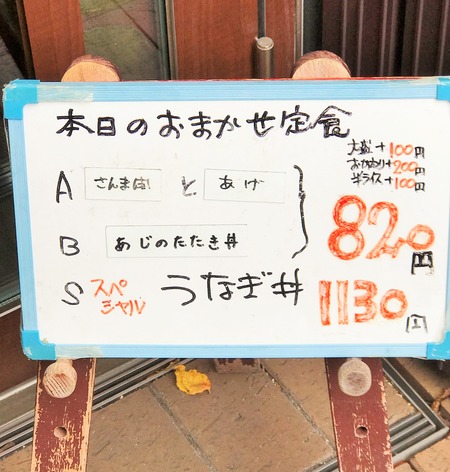 本日のおまかせ定食
大盛+100円
おかわり+200円
半ライス+100円
A さんま と あげ
B あじのたたき丼
820円
S スペシャル うなぎ丼 1130円